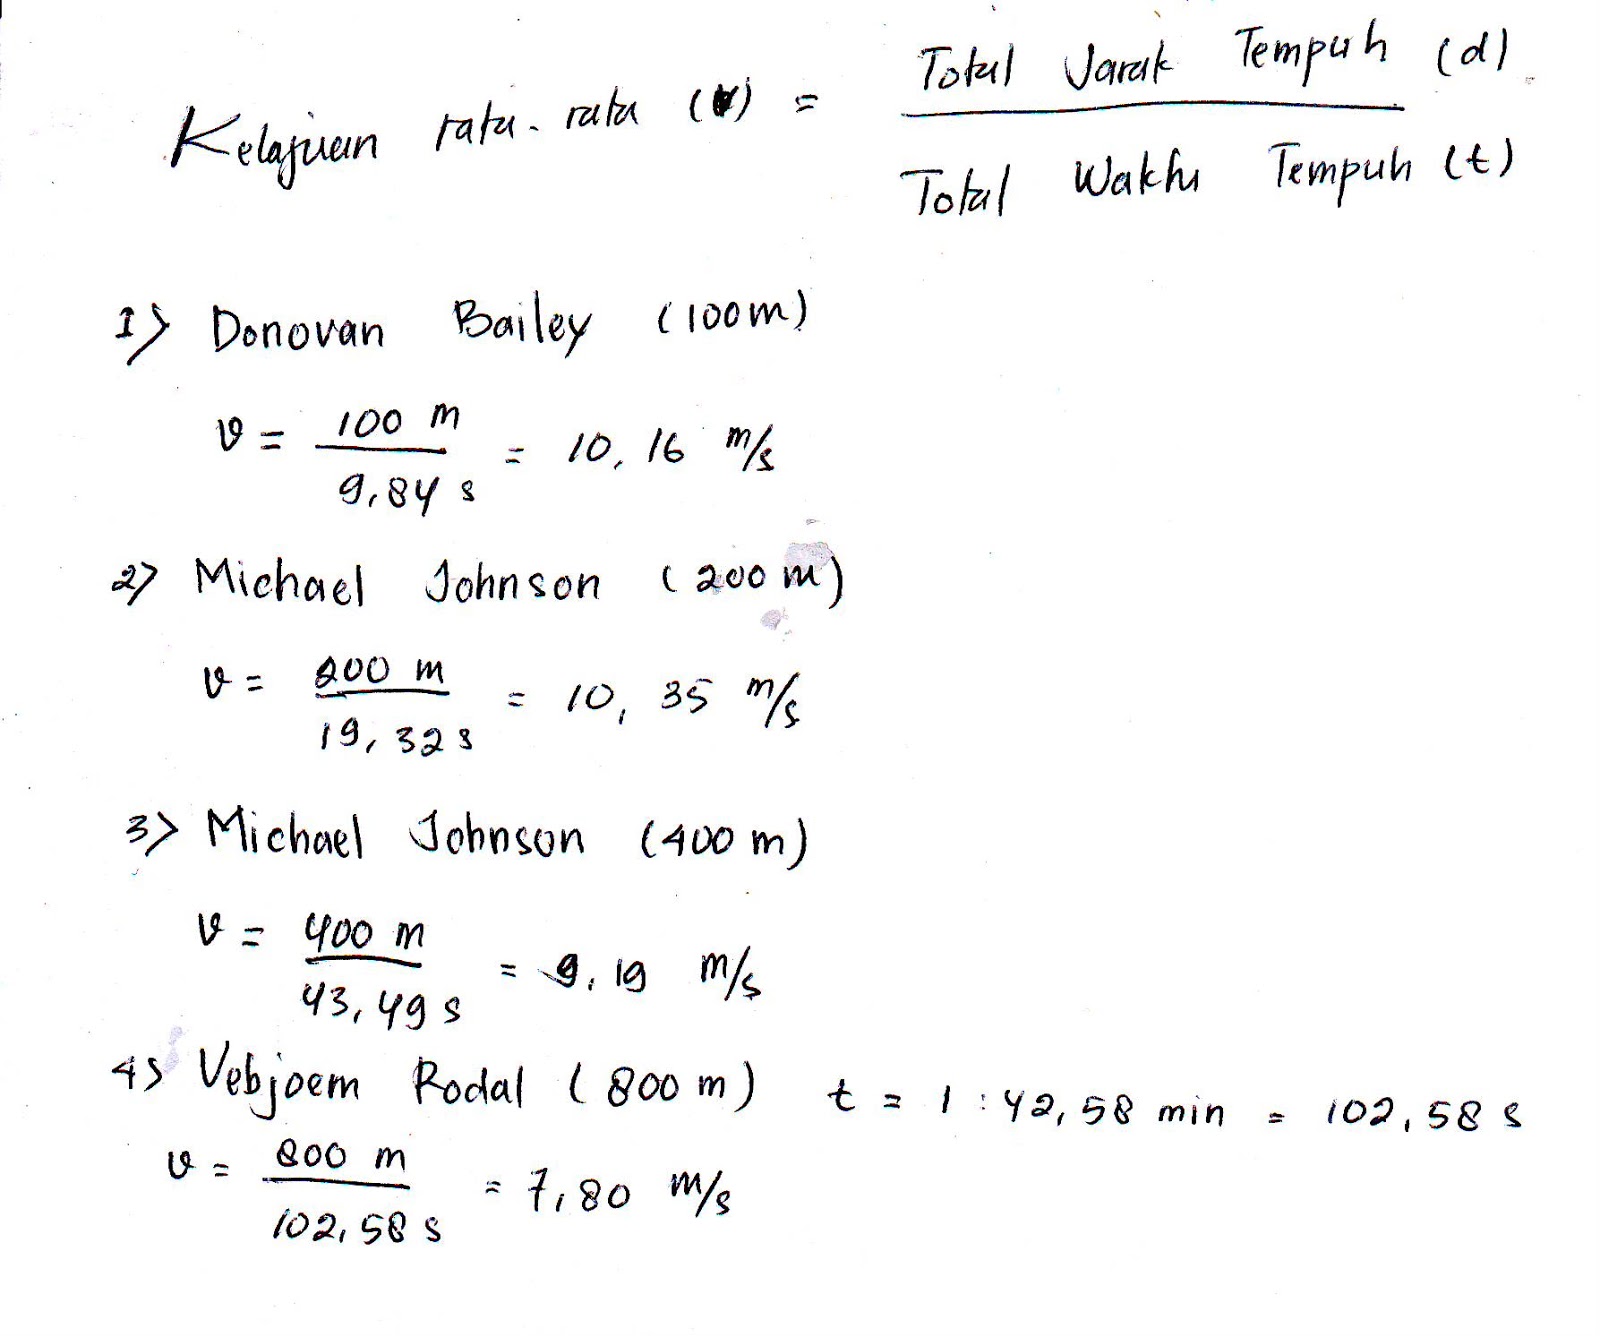 Kelajuan rata-rata (v) = Total Jarak Tempuh (d)
Total Waktu Tempuh (t)
1> Donovan Bailey (100m)
v = 100 m / 9,84 s = 10,16 m/s
2> Michael Johnson (200 m)
v = 200 m / 19,32 s = 10,35 m/s
3> Michael Johnson (400 m)
v = 400 m / 43,49 s = 9,19 m/s
4> Vebjoem Rodal (800 m) t = 1:42,58 min = 102,58 s
v = 800 m / 102,58 s = 7,80 m/s